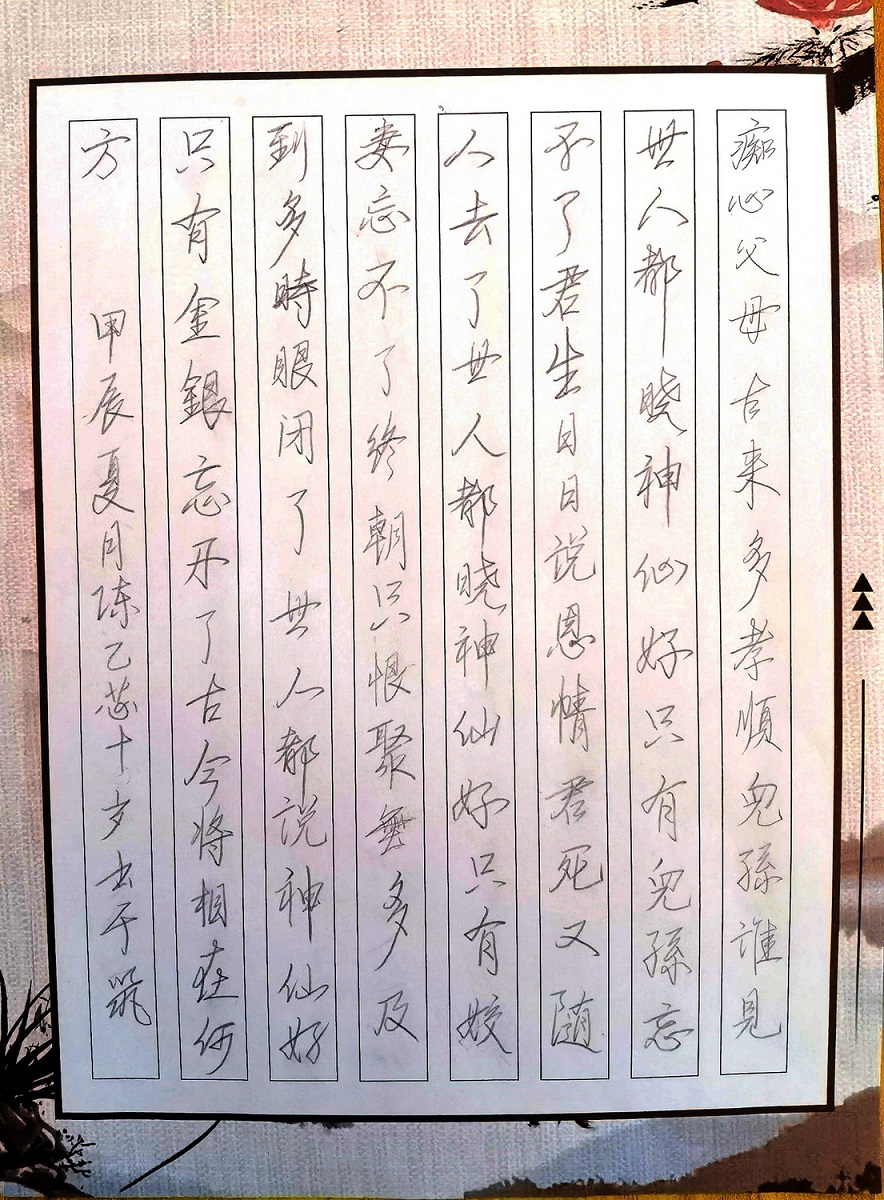 痴心父母古来多孝順兒孫誰見
世人都晓神仙好只有兒孫忘
不了君生日日说恩情君死又随
人去了世人都晓神仙好只有姣
妻忘不了终朝只恨聚無多及
到多時眼闭了世人都说神仙好
只有金銀忘不了古今将相在何
方
甲辰夏月陈乙蕊十岁书于筑